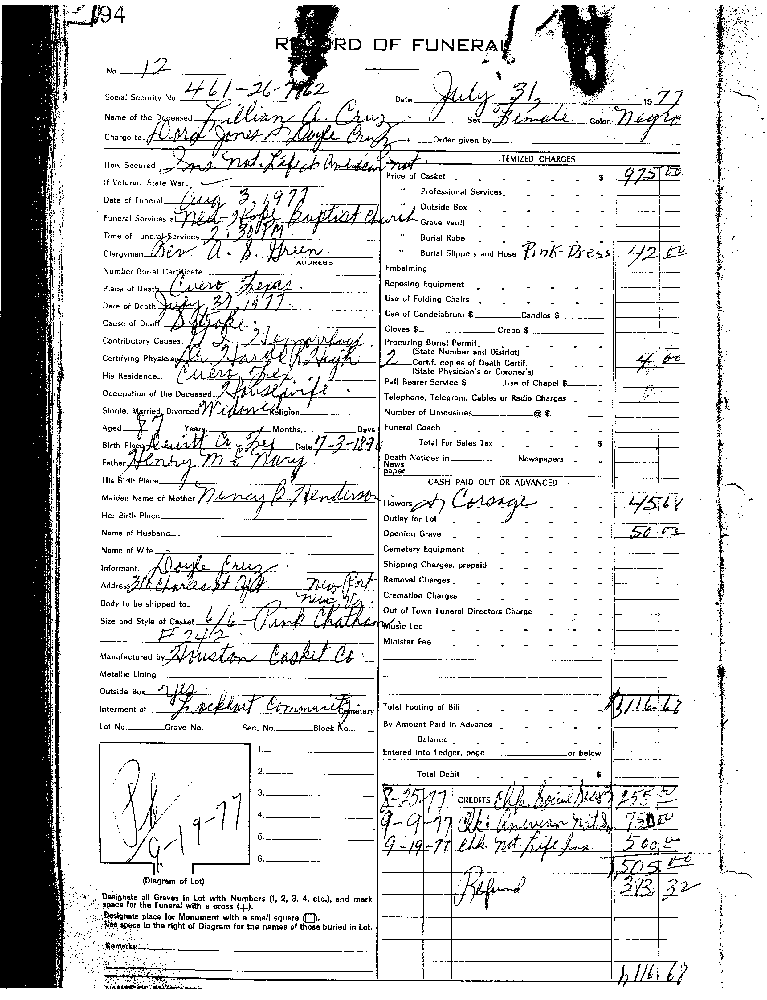 94
RECORD OF FUNERAL
No. 12
Social Security No. 461-26-7962 Date July 31, 1977
Name of the Deceased Lillian A. Cruz Sex Female Color Negro
Charge to Dora Jones & Doyle Cruz Order given by
How Secured Ins. Nat. Life & American Nat.
If Veteran, State War
Date of Funeral Aug 3, 1977
Funeral Services at New Hope Baptist Church
Time of Funeral Services 2:30 PM
Clergyman Rev. A. S. Green
ADDRESS
Number Burial Certificate
Place of Death Cuero Texas
Date of Death July 31, 1977
Cause of Death Stroke
Contributory Causes Hemorrhage
Certifying Physician Dr. High
His Residence Cuero Tex
Occupation of the Deceased Housewife
Single, Married, Divorced Widowed Religion
Aged 87 Years Months, Days
Birth Place Dewitt Co, Tex Date 7-3-1890
Father Henry McNary
His Birth Place
Maiden Name of Mother Nancy B. Henderson
Her Birth Place
Name of Husband
Name of Wife
Informant Doyle Cruz
Address Charles St New Port
Body to be shipped to New, Va.
Size and Style of Casket 6/6 - Pink Chatham
# 242
Manufactured by Houston Casket Co.
Metallic Lining
Outside Box Yes
Interment at Lockhart Community Cemetery
Lot No. Grave No. Sec. No. Block No.
1.
2.
3.
4.
5.
6.
Pd 9-19-77
(Diagram of Lot)
Designate all Graves in Lot with Numbers (1, 2, 3, 4, etc.), and mark
space for the Funeral with a cross (+).
Designate place for Monument with a small square (□).
Use space to the right of Diagram for the names of those buried in Lot.
Remarks
ITEMIZED CHARGES
Price of Casket $ 975 00
" Professional Services
" Outside Box
" Grave Vault
" Burial Robe
" Burial Slippers and Hose Pink Dress 42 00
Embalming
Reposing Equipment
Use of Folding Chairs
Use of Candelabrum $ Candles $
Gloves $ Crepe $
Procuring Burial Permit
(State Number and District)
2 Certf. copies of Death Certif. 4 00
(State Physician's or Coroner's)
Pall Bearer Service $ Use of Chapel $
Telephone, Telegram, Cables or Radio Charges
Number of Limousines @ $
Funeral Coach
Total For Sales Tax $
Death Notices in Newspapers
News
paper
CASH PAID OUT OR ADVANCED
Flowers Corsage 45.67
Outlay for Lot
Opening Grave 50 00
Cemetery Equipment
Shipping Charges, prepaid
Removal Charges
Cremation Charges
Out of Town Funeral Directors Charge
Music Fee
Minister Fee
Total Footing of Bill $1,116.67
By Amount Paid in Advance
Balance
Entered into Ledger, page or below
Total Debit $
8-25-77 CREDITS Chk Social Sec 255 00
9-9-77 Chk American Nat. 750 00
9-19-77 Chk Nat Life Ins 500 00
1,505 00
Refund 388 32
1,116.67